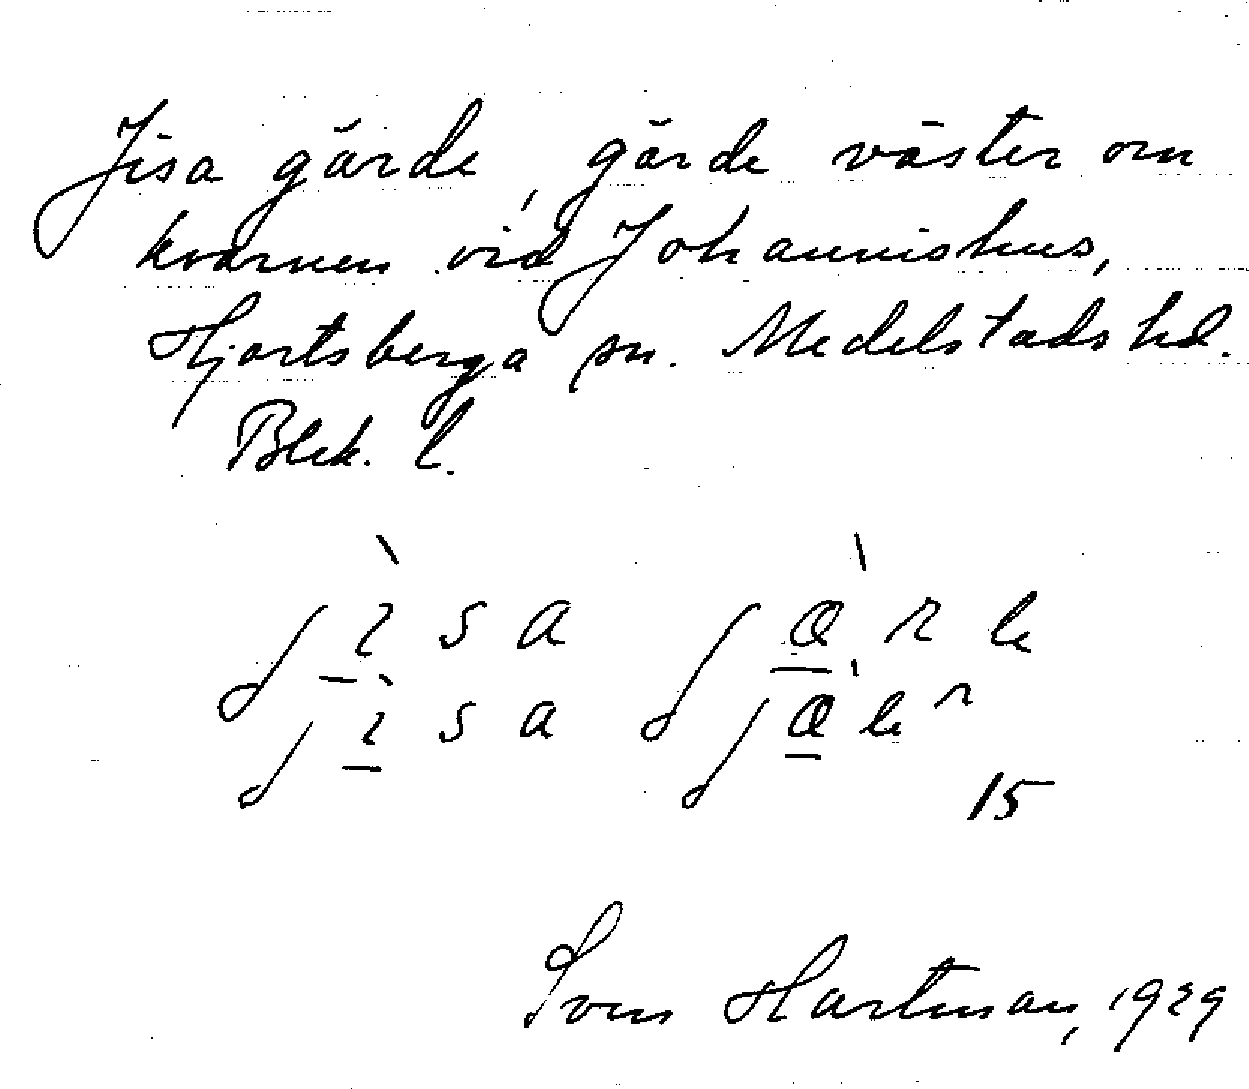 Jisa gärde, gärde väster om
kvarnen vid Johannishus,
Hjortsberga sn. Medelstads hd.
Blek. l.
15
Sven Hartman, 1929